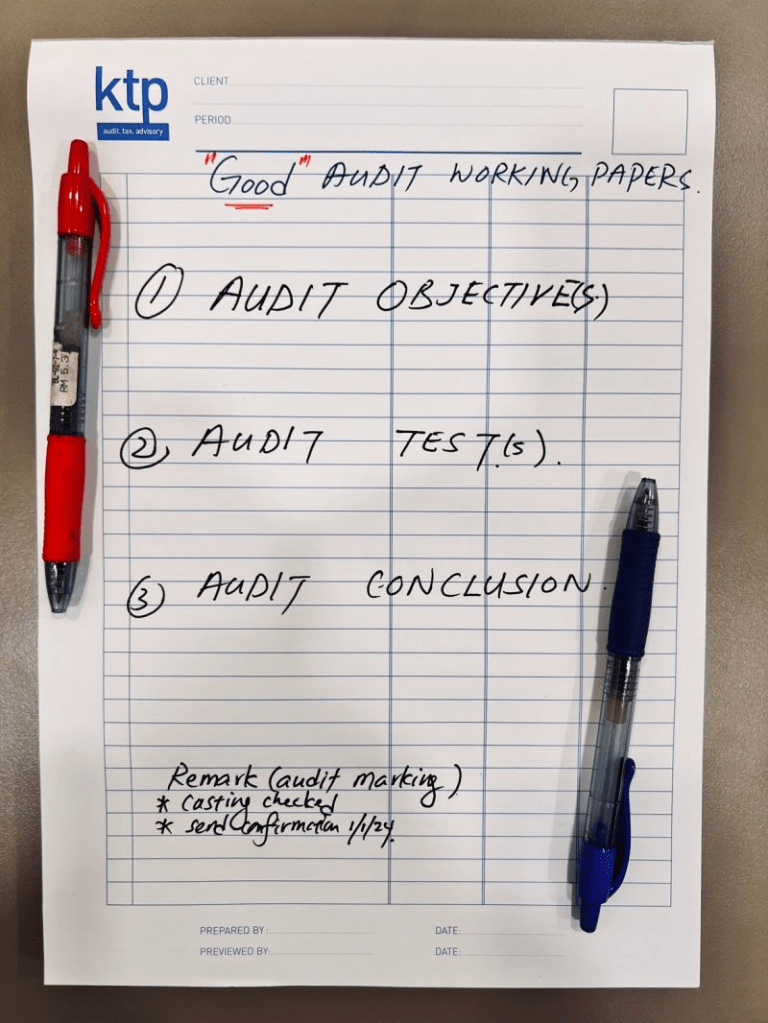 ktp
audit. tax. advisory
CLIENT
PERIOD
"Good" AUDIT WORKING PAPERS.
① AUDIT OBJECTIVE(S)
② AUDIT TEST(S).
③ AUDIT CONCLUSION.
Remark (audit marking)
* casting checked
* send confirmation 1/1/24.
PREPARED BY: DATE:
PREVIEWED BY: DATE:
RM 5.3